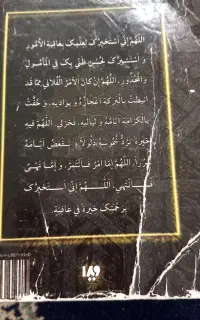 اللَّهُمَّ إِنِّي أَسْتَخِيرُكَ لِعِلْمِكَ بِعَاقِبَةِ الْأُمُورِ
وَ أَسْتَشِيرُكَ لِحُسْنِ ظَنِّي بِكَ فِي الْمَأْمُولِ
وَالْمَحْذُورِ، اللَّهُمَّ إِنْ كَانَ الْأَمْرُ الْفُلَانِيُّ مِمَّا قَدْ
نِيطَتْ بِالْبَرَكَةِ أَعْجَازُهُ وَ بَوَادِيهِ، وَ حُفَّتْ
بِالْكَرَامَةِ أَيَّامُهُ وَ لَيَالِيهِ، فَخِرْ لِي، اللَّهُمَّ فِيهِ
خِيَرَةً تَرُدُّ شَمُوسَهُ ذَلُولًا وَ تَقْعَضُ أَيَّامَهُ
سُرُورًا، اللَّهُمَّ إِمَّا أَمْرٌ فَأَئْتَمِرُ، وَ إِمَّا نَهْيٌ
فَأَنْتَهِي، اللَّهُمَّ إِنِّي أَسْتَخِيرُكَ
بِرَحْمَتِكَ خِيَرَةً فِي عَافِيَةٍ.